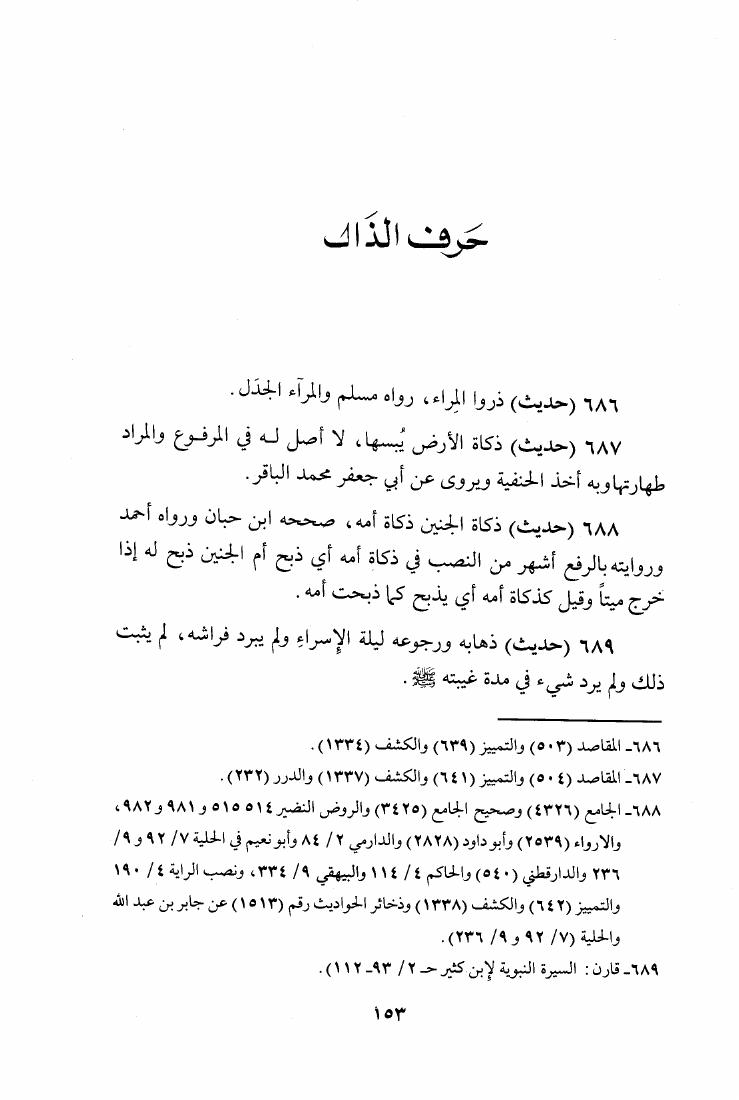 حَرف الذَال
٦٨٦ (حديث) ذروا المِراء، رواه مسلم والمرآء الجدَل.
٦٨٧ (حديث) ذكاة الأرض يُبسها، لا أصل لـه في المرفـوع والمراد
طهارتهاوبه أخذ الحنفية ويروى عن أبي جعفر محمد الباقر.
٦٨٨ (حديث) ذكاة الجنين ذكاة أمه، صححه ابن حبان ورواه أحمد
وروايته بالرفع أشهر من النصب في ذكاة أمه أي ذبح أم الجنين ذبح له إذا
خرج ميتاً وقيل كذكاة أمه أي يذبح كما ذبحت أمه.
٦٨٩ (حديث) ذهابه ورجوعه ليلة الإسراءِ ولم يبرد فراشه، لم يثبت
ذلك ولم يرد شيء في مدة غيبته ﷺ.
٦٨٦ـ المقاصد (٥٠٣) والتمييز (٦٣٩) والكشف (١٣٣٤).
٦٨٧ـ المقاصد (٥٠٤) والتمييز (٦٤١) والكشف (١٣٣٧) والدرر (٢٣٢).
٦٨٨ـ الجامع (٤٣٢٦) وصحيح الجامع (٣٤٢٥) والروض النضير ٥١٤ ٥١٥ و٩٨١ و٩٨٢،
والارواء (٢٥٣٩) وأبو داود (٢٨٢٨) والدارمي ٢/ ٨٤ وأبو نعيم في الحلية ٧/ ٩٢ و ٩/
٢٣٦ والدارقطني (٥٤٠) والحاكم ٤/ ١١٤ والبيهقي ٩/ ٣٣٤، ونصب الراية ٤/ ١٩٠
والتمييز (٦٤٢) والكشف (١٣٣٨) وذخائر الحواديث رقم (١٥١٣) عن جابر بن عبد الله
والحلية (٧/ ٩٢ و ٩/ ٢٣٦).
٦٨٩ـ قارن: السيرة النبوية لإبن كثير حـ ٢/ ٩٣ـ ١١٢).
١٥٣